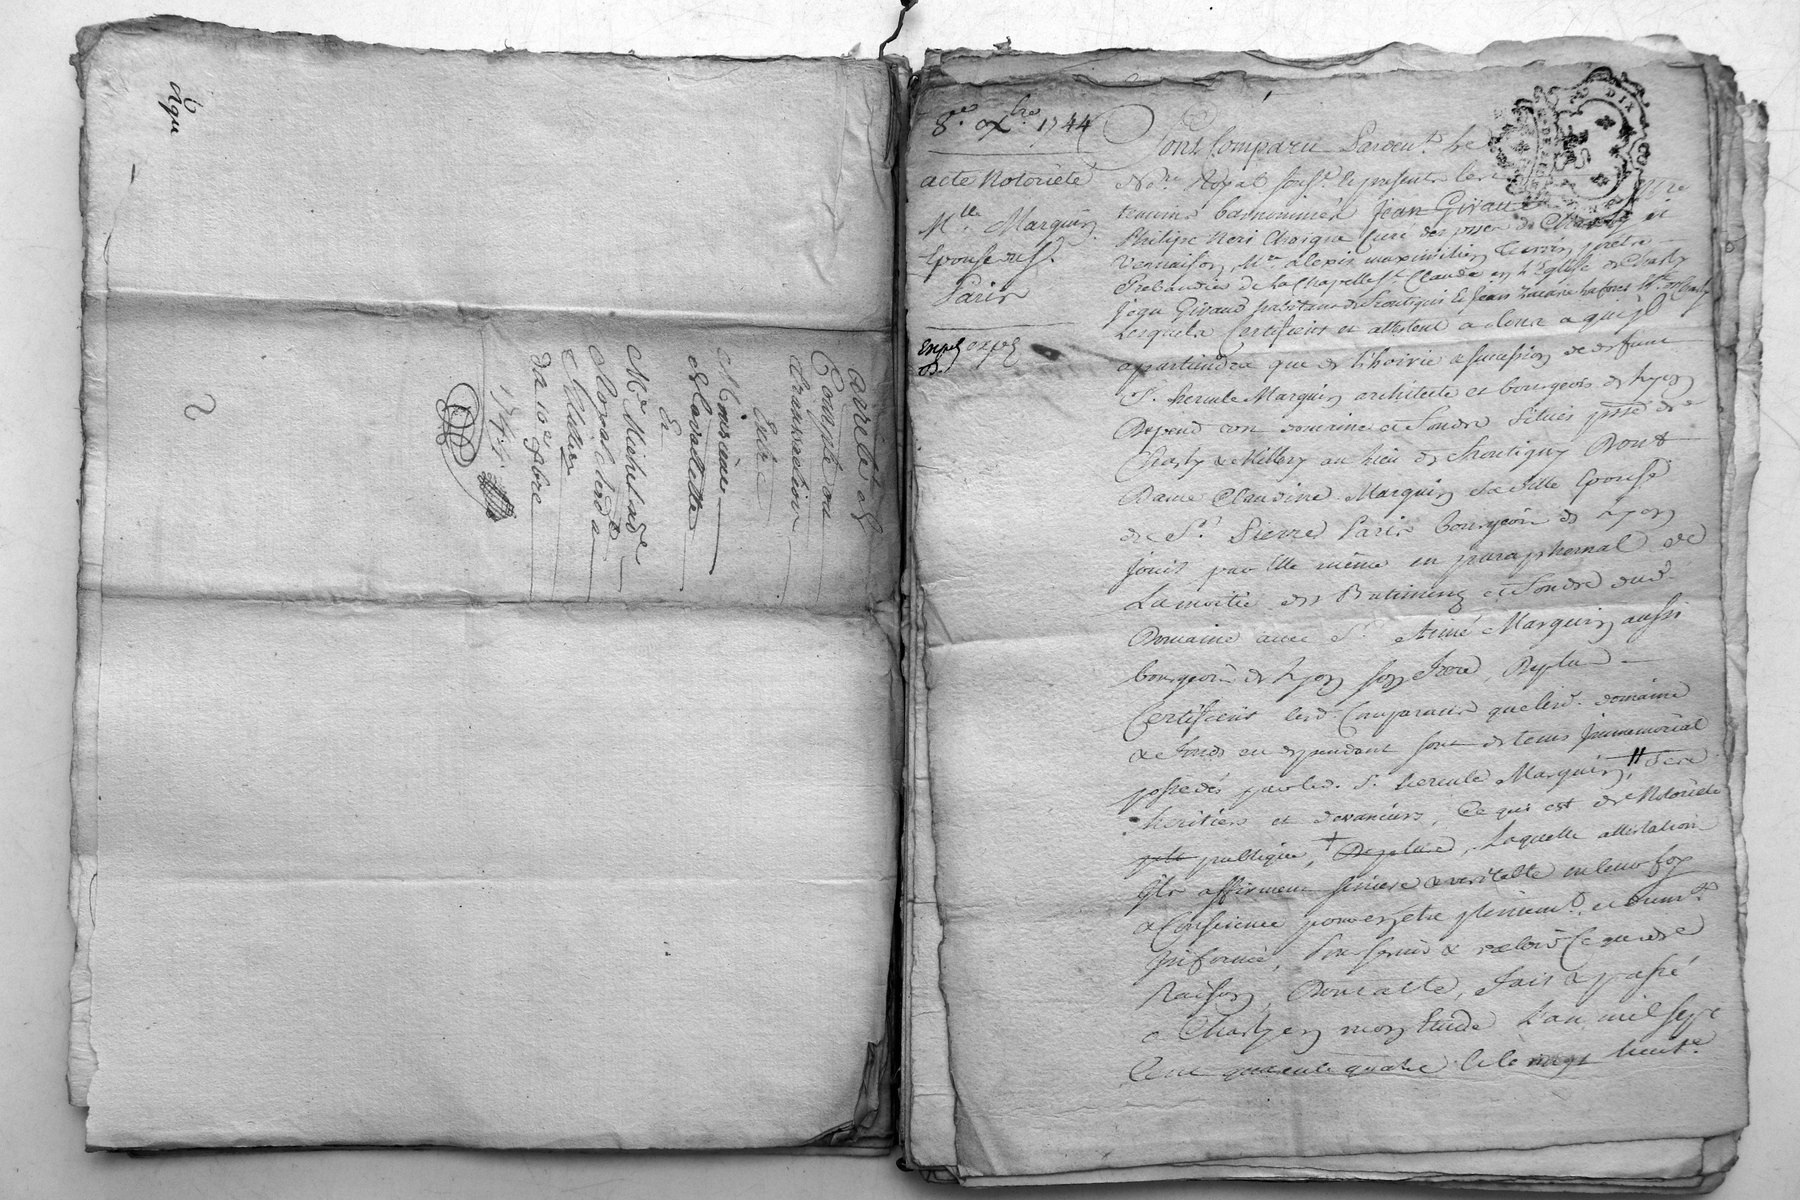 arreté &
Compte ou
transaction
Entre
Monsieur
Delavalette
Et
Me Michel
Royal
du 10e xbre
8e. xbre 1744
acte Notorieté
Mlle Marquin
Epouse du Sr.
Paris
Expé expé
Sont Comparu Pardevt. le
Nore. Royal sousé. & presents les
temoins basnommés Jean Giraud
Philipe Neri Choigne Curé des par de Charly et
Vernaison, Mre. alexis maximilien prêtre
Prebandier de la Chapelle St. Claude en l'Eglise de Charly
Jean Giraud habitant de Montigni & Jean
Lesquels Certifient et attestent a tous a qui jl
appartiendra que de l'hoirie & succession de defunt
Sr. hercule Marquin architecte et bourgeois de Lyon
Depend un domaine & fonds Situés psse de
Charly & Millery au lieu de Montigny Dont
Dame Claudine Marquin sa fille Epouse
de Sr. Pierre Paris bourgeois de Lyon
jouit par Elle même en paraphernal de
La moitié des Batiments et fonds dud.
Domaine avec Sr. Aimé Marquin aussi
bourgeois de Lyon son frere, De plus
Certifient lesd. Comparants que led. domaine
& fonds en dependant sont de tems jmmemorial
possedés par led. Sr. hercule Marquin, Ses
heritiers et devanciers, Ce qui est de Notorieté
publique, De plus, Laquelle attestation
jls affirment sincere & veritable en leur foy
& Conscience pour en etre pleinemt. et duemt.
jnformés, Pour servir & valoir Ce que de
Raison, Dont acte, fait & passé
a Charly en mon Etude L'an mil sept
Cent quarante quatre & le huite.